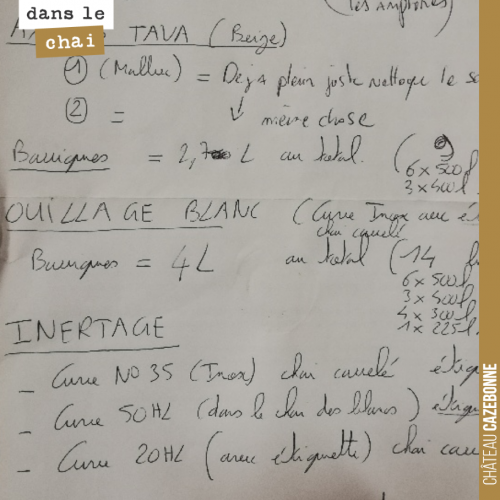 dans le
chai
(les amphores)
TAVA (Beige)
① (Malbec) = Déjà plein juste nettoyer le
② = ↓ même chose
Barriques = 2,7 L au total. (9
6 x 500 l
3 x 400 l.
OUILLAGE BLANC (Cuve Inox avec
chai carrelé
Barriques = 4L au total (14
6 x 500 l.
3 x 400 l.
4 x 300 l.
1 x 225 l.
INERTAGE
_ Cuve NO 35 (Inox) chai carrelé
_ Cuve 50HL (dans le chai des blancs)
_ Cuve 20HL (avec étiquette) chai
CHÂTEAU CAZEBONNE